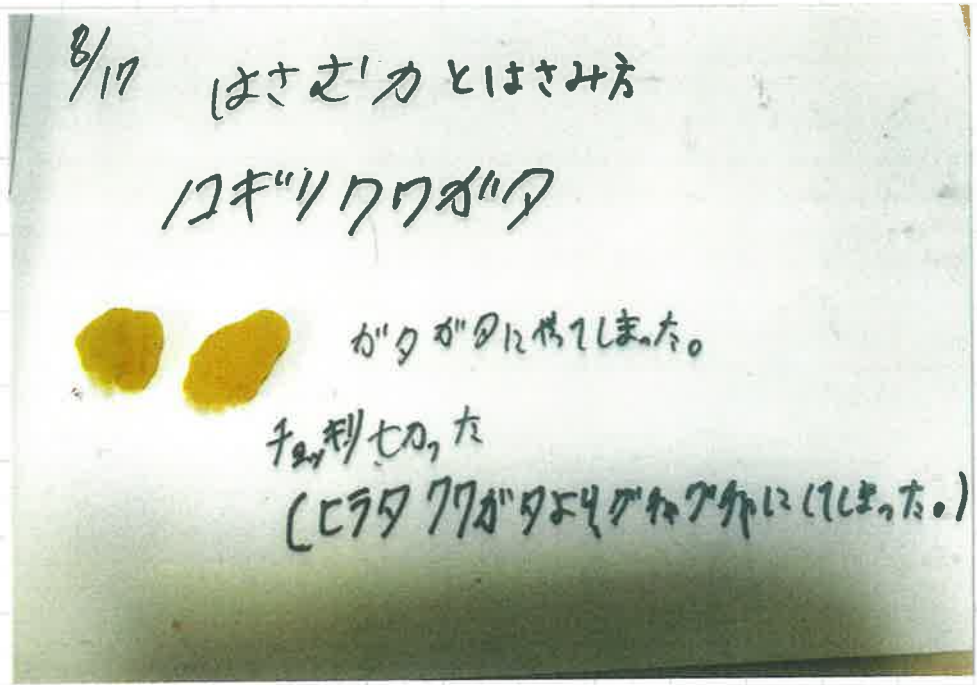 8/17 はさむ力とはさみ方
ノコギリクワガタ
ガタガタにやってしまった。
チョッキリ切った
(ヒラタクワガタよりグチャグチャにしてしまった。)